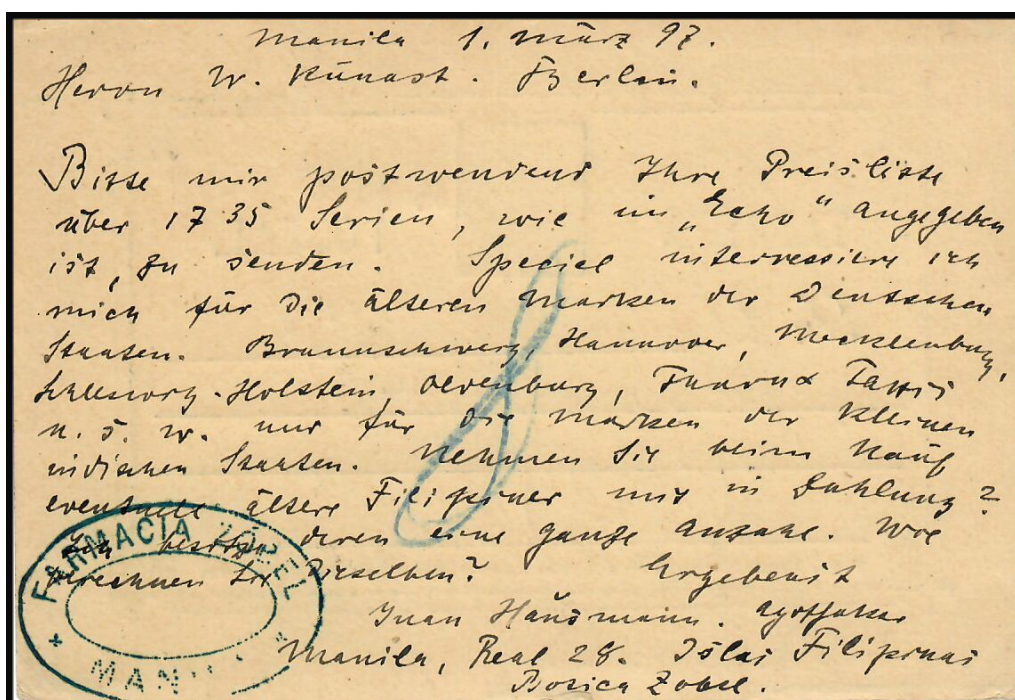 Manila 1. März 97.
Herrn W. Künast. Berlin.
Bitte mir postwendend Ihre Preisliste
über 1735 Serien, wie im „Echo“ angegeben
ist, zu senden. Speciel interressiere ich
mich für die älteren Marken der Deutschen
Staaten. Braunschweig, Hannover, Mecklenburg,
Schleswig-Holstein, Oldenburg, Thurn & Taxis
u. s. w. und für die Marken der kleinen
indischen Staaten. Nehmen Sie beim Kauf
eventuell ältere Filipiner mit in Zahlung?
Ich besitze deren eine ganze Anzahl. Wie
berechnen Sie dieselben? Ergebenst
Juan Hausmann. Apotheker
Manila, Real 28. Islas Filipinas
Botica Zobel.
FARMACIA ZOBEL